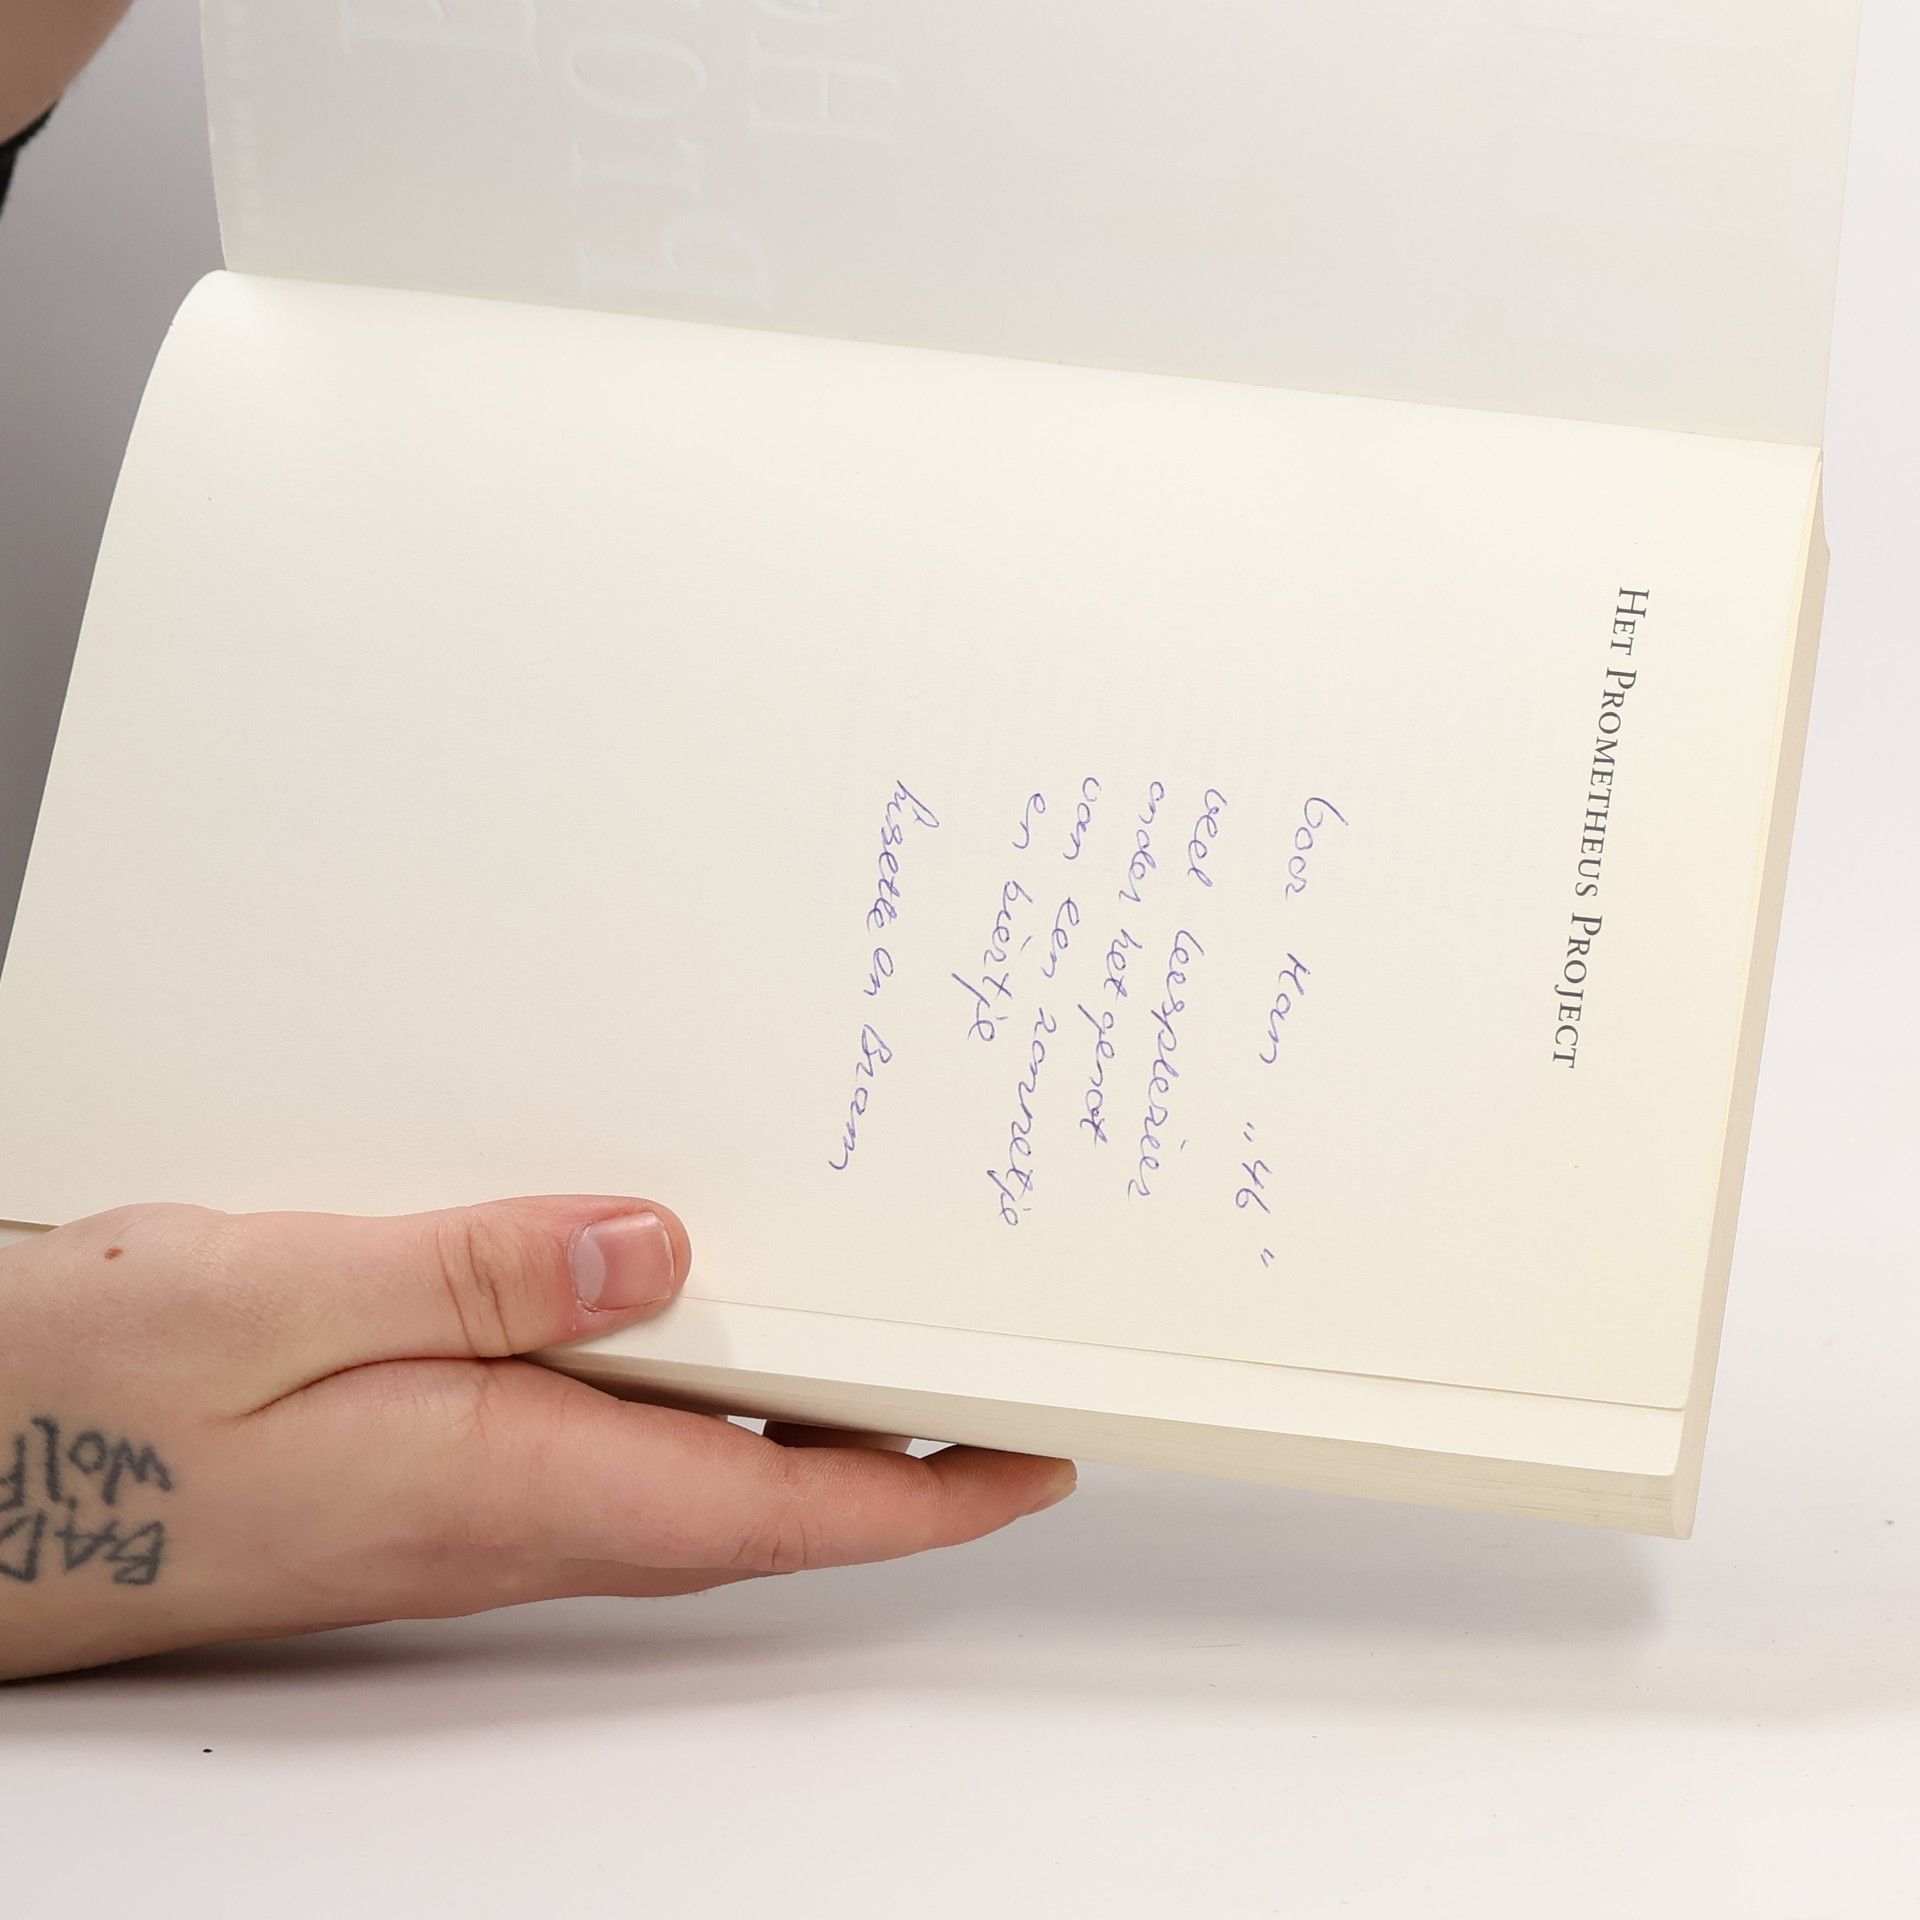 HET PROMETHEUS PROJECT
Voor Han „46"
veel leesplezier
onder het genot
van een zonnetje
en biertje
Lisette en Bram
BAD
WOLF